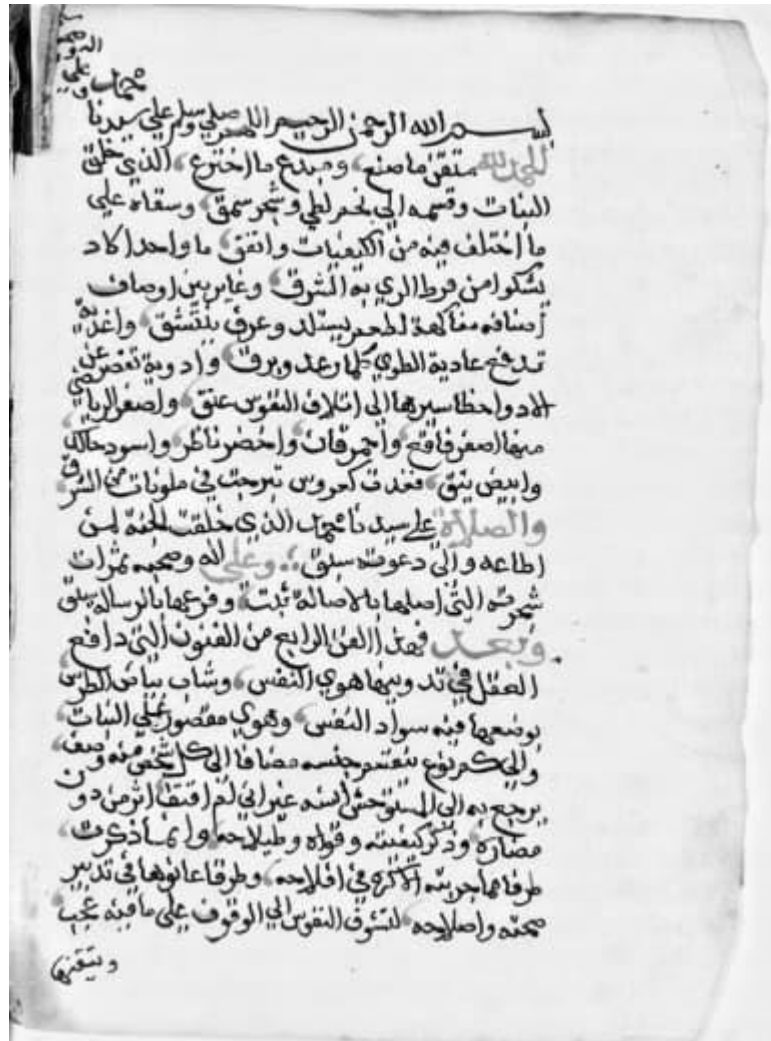 بسم الله الرحمن الرحيم اللهم صلي وسلم علي سيدنا
محمد وعلي
الحمد لله متقن ما صنع ومبدع ما اخترع الذي خلق
النبات وقسمه الي نجم لطي وشجر سمق وسقاه علي
ما اختلف فيه من الكيفيات واتفق ما واحدا كاد
يشكوا من فرط الري به الشرق وغاير بين اوصاف
اصنافه مفاكهة لطعم يستلد وعرف ينتشق واغدية
تدفع عادية الطوي كلما رعد وبرق وادوية تغض عن
الادوا خطا سيرها الي اتلاف النفوس عنق واصفر
منها اصفر فاقع واحمر قان واخضر ناظر واسود حالك
وابيض يقق فغدت كعروس تبرجت في ملونات من السرق
والصلاة علي سيدنا محمد الذي خلقت الجنة لمن
اطاعه والي دعوته سبق وعلي اله وصحبه ثمرات
شجرته التي اصلها بالاصالة ثبت وفرعها بالرسالة سبق
وبعد فهدا الفن الرابع من الفنون التي دافع
العقل في تدوينها هوي النفس وشاب بياض الطرس
بوضعها فيه سواد النقس وهوي مقصور علي النبات
والي كم نوع ينقسم جنسه مضافا الي كل شخص منه وصف
يرجع به الي المستوحش انسه غير اني لم اقتف اثر من دون
مضاره ودكر كيفيته وقواه وطبلاحه وانما دكرت
طرفا مما جربته الاكره في افلاحه وطرقا عانوها في تدبير
صحته واصلاحه لتشوف النفوس الي الوقوف علي ما فيه